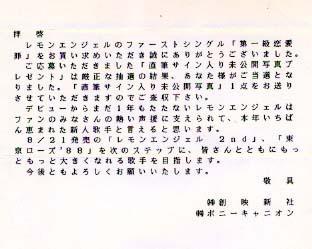 拝啓
レモンエンジェルのファーストシングル「第一級恋愛
罪」をお買い求めいただき誠にありがとうございました。
ご応募いただきました「直筆サイン入り未公開写真プ
レゼント」は厳正な抽選の結果、あなた様がご当選とな
りました。「直筆サイン入り未公開写真」1点をお送り
させていただきますのでご査収下さい。
デビューからまだ1年もたたないレモンエンジェルは
ファンのみなさんの熱い声援に支えられて、本年いちば
ん恵まれた新人歌手と言えると思います。
8/21発売の「レモンエンジェル 2nd」、「東
京ローズ'88」を次のステップに、皆さんとともにもっ
ともっと大きくなれる歌手を目指します。
今後ともよろしくお願いいたします。
敬具
㈱創映新社
㈱ポニーキャニオン